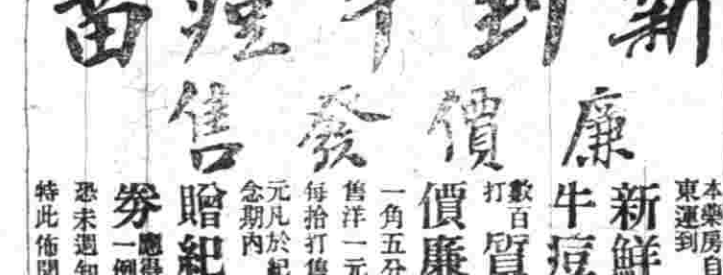 新到牛痘苗
廉價發售
本藥房自
東運到
新鮮
牛痘
數百
打
質
價廉
一角五分
售洋一元
每拾打售
元凡於紀
念期內
贈紀
券
應得
一例
恐未週知
特此佈聞